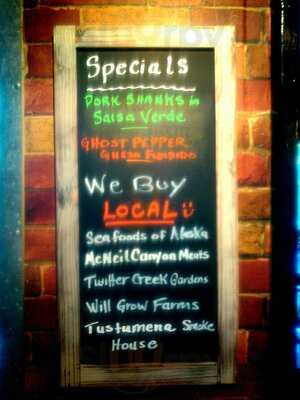 Specials
PORK SHANKS in
Salsa Verde
GHOST PEPPER
Queso Fundido
We Buy
LOCAL
Seafoods of Alaska
McNeil Canyon Meats
Twitter Creek Gardens
Will Grow Farms
Tustumena Smoke
House